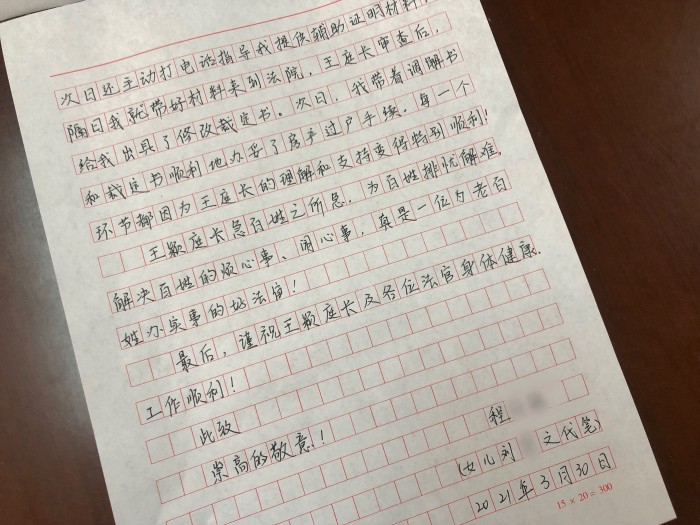 次日还主动打电话指导我提供辅助证明材料，
隔日我就带好材料来到法院，王庭长审查后，
给我出具了修改裁定书。次日，我带着调解书
和裁定书顺利地办妥了房产过户手续。每一个
环节都因为王庭长的理解和支持变得特别顺利！
王颖庭长急百姓之所急，为百姓排忧解难，
解决百姓的烦心事、闹心事，真是一位为老百
姓办实事的好法官！
最后，谨祝王颖庭长及各位法官身体健康，
工作顺利！
此致
崇高的敬意！
程
(女儿刘 文代笔)
2021年3月30日
15×20=300